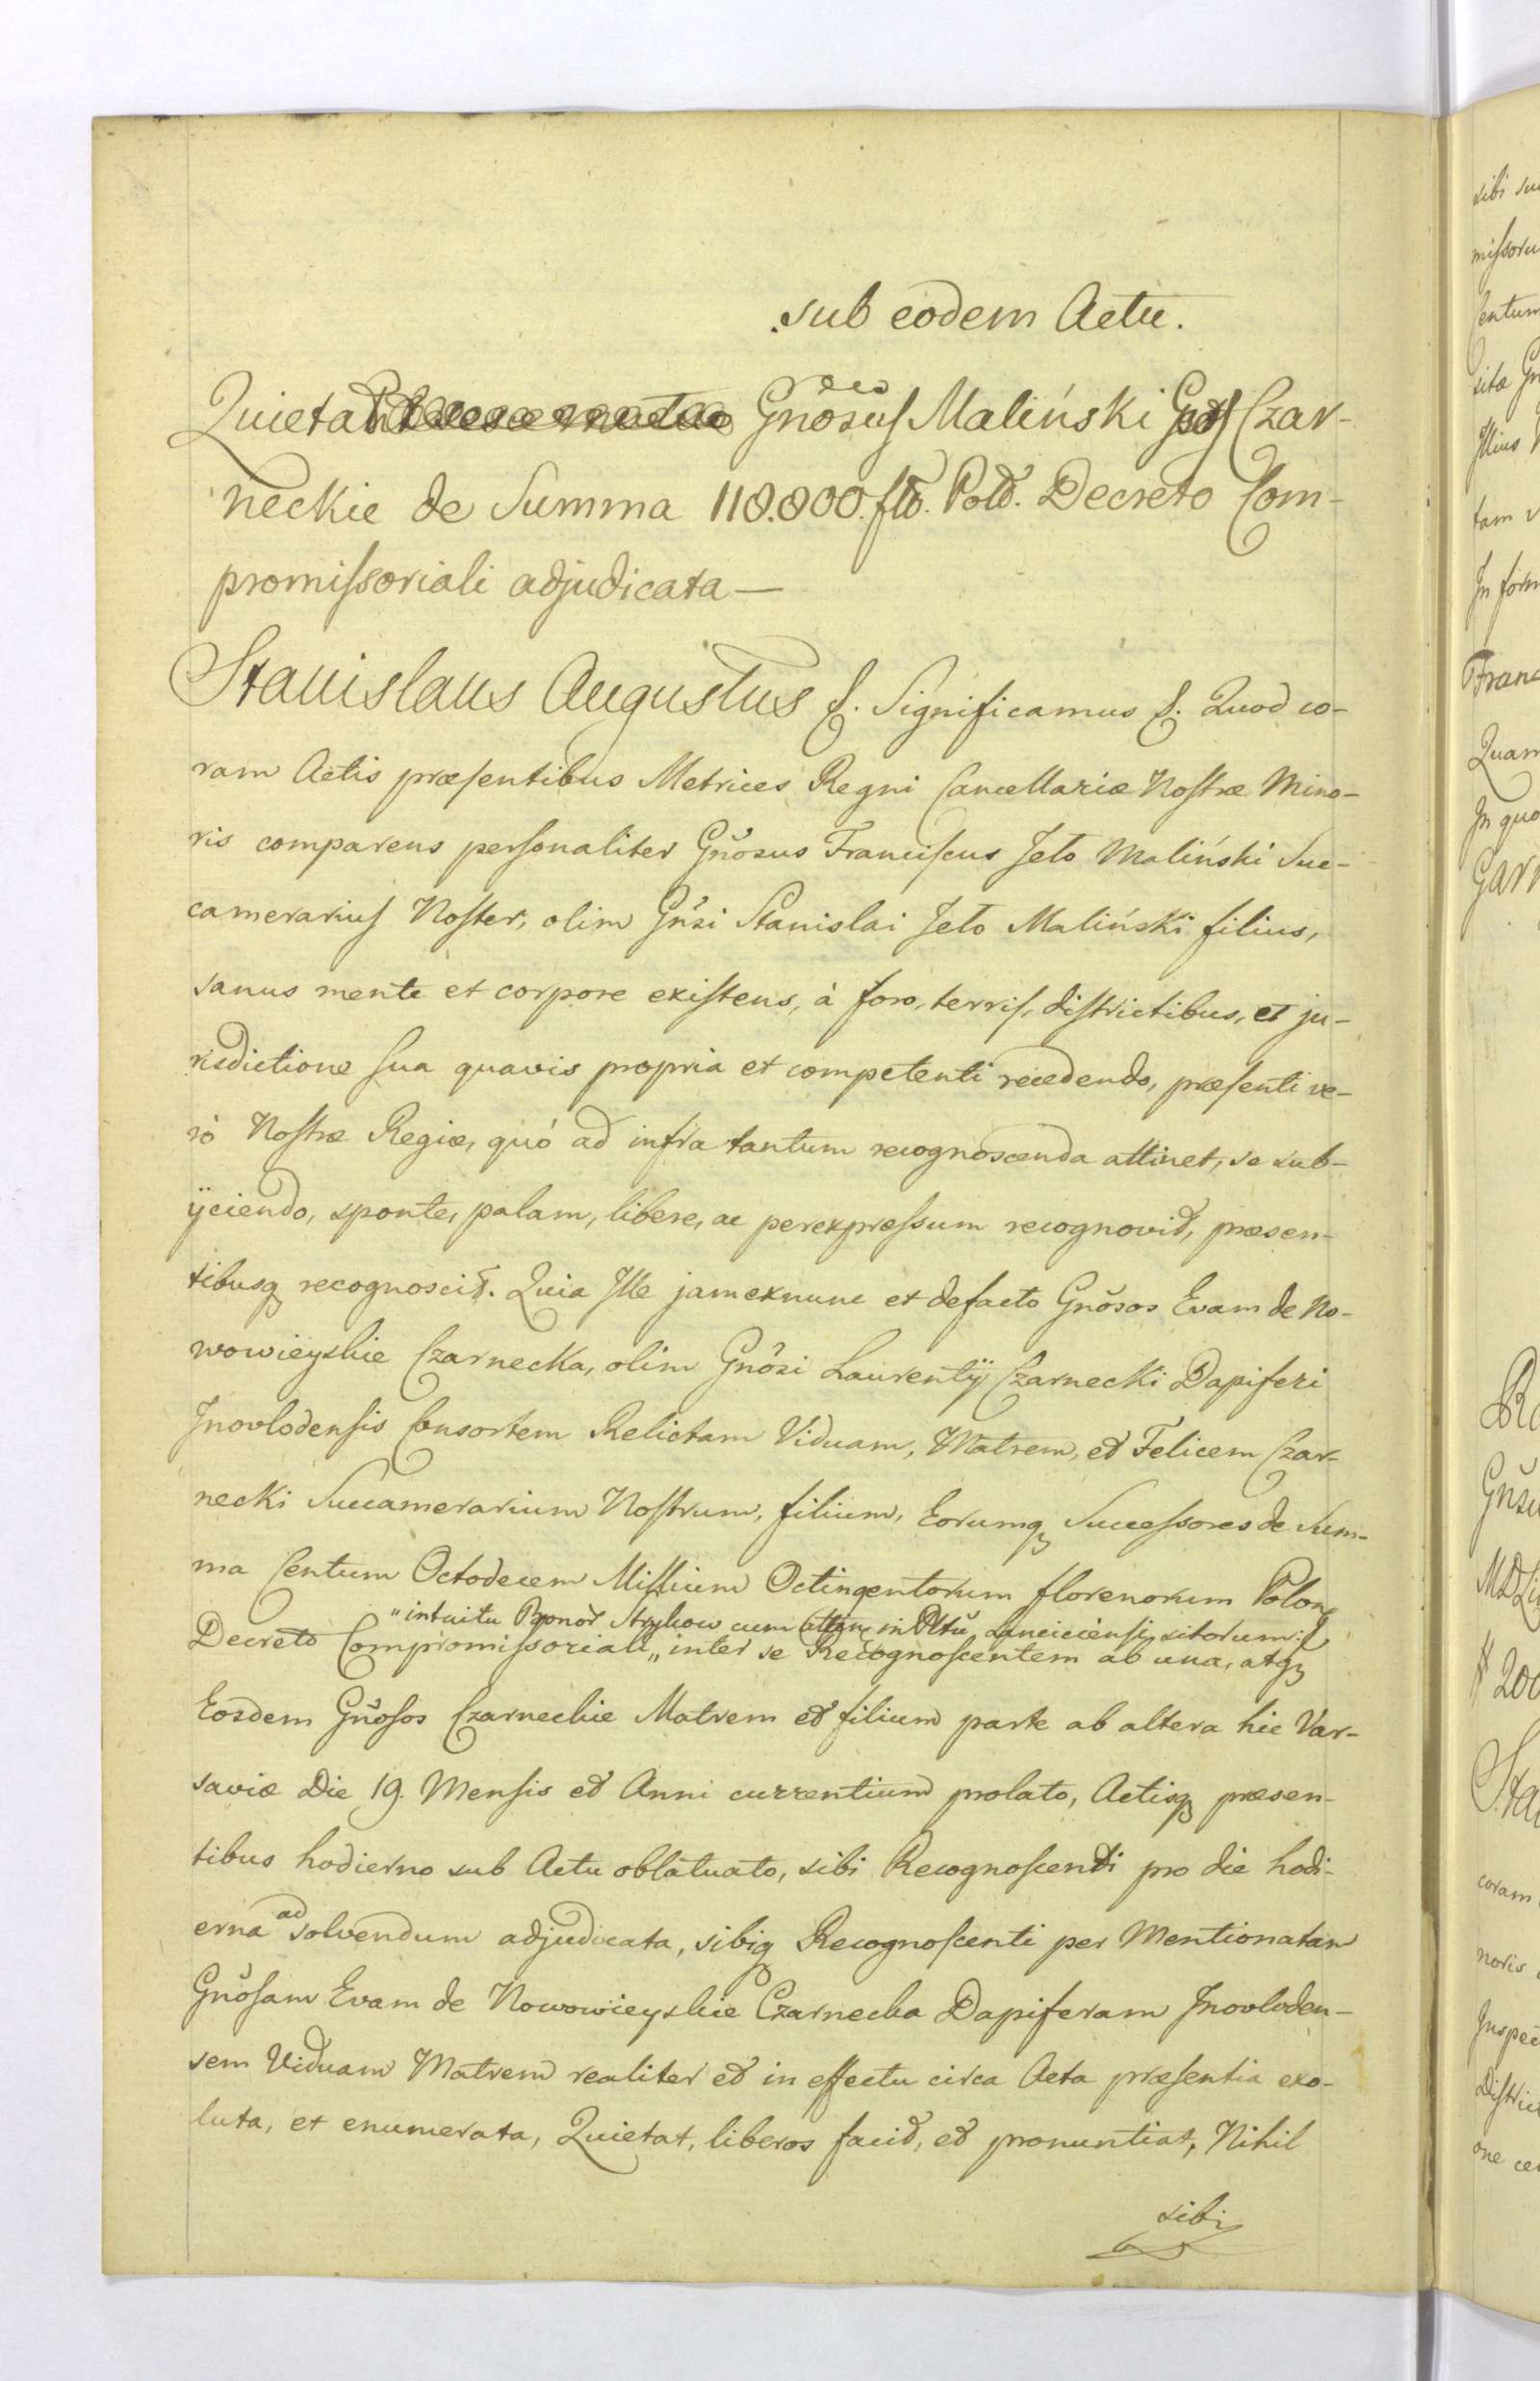 sub eodem Actu.
Quietat Gnõsus Maliński Gnos Czar-
neckie de Summa 118.800. flo. Pold. Decreto Com-
promissoriali adjudicata—
Stanislaus Augustus &. Significamus &. Quod co-
ram Actis præsentibus Metrices Regni Cancellariæ Nostræ Mino-
ris comparens personaliter Gnõsus Franciscus Jeło Maliński Suc-
camerarius Noster, olim Gñsi Stanislai Jeło Maliński filius,
sanus mente et corpore existens, à foro, terris, districtibus, et ju-
risdictione sua quavis propria et competenti recedendo, præsenti ve-
rò Nostræ Regiæ, quó ad infra tantum recognoscenda attinet, se sub-
ÿciendo, sponte, palam, libere, ac perexpressum recognovit, præsen-
tibusq recognoscit. Quia Ille jamexnunc et defacto Gnõsos Evam de No-
wowieyskie Czarnecka, olim Gnõsi Laurentÿ Czarnecki Dapiferi
Inovlodensis Consortem Relictam Viduam, Matrem, et Felicem Czar-
necki Succamerarium Nostrum, filium, Eorumq Successores de Sum-
ma Centum Octodecem Millium Octingentorum florenorum Polon
"intuitu Bonor Strykow cum atten in Pltũ Lanciciensi sitorum
Decreto Compromissoriali „ inter se Recognoscentem ab una, atq
Eosdem Gnõsos Czarneckie Matrem et filium parte ab altera hic Var-
saviæ Die 19. Mensis et Anni currentium prolato, Actisq præsen-
tibus hodierno sub Actu oblatuato, sibi Recognoscenti pro die hodi-
erna ad solvendum adjudicata, sibiq Recognoscenti per Mentionatam
Gnõsam Evam de Nowowieyskie Czarnecka Dapiferam Inovloden-
sem Viduam Matrem realiter et in effectu circa Acta præsentia exo-
luta, et enumerata, Quietat, liberos facit, et pronuntiat, Nihil
sibi